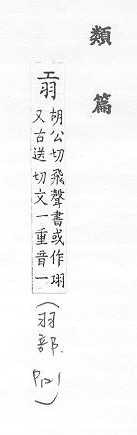 類篇
翃
胡公切飛聲書或作翃
又古送切文一重音一
(羽部. P121)